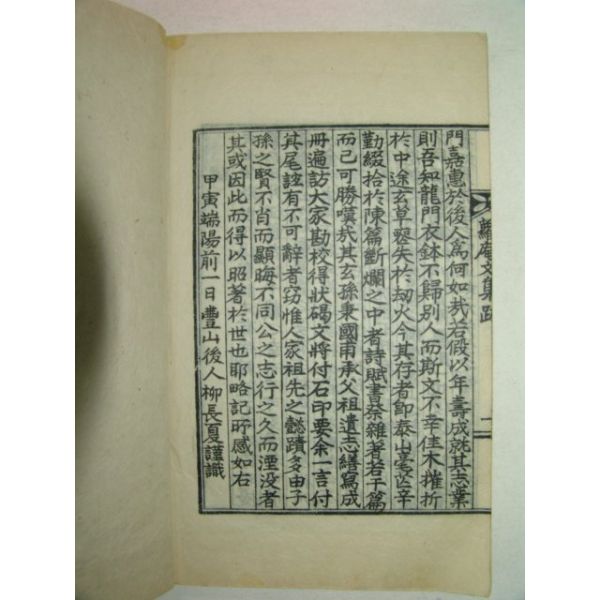 蘿庵文集跋
門嘉惠於後人爲何如哉若假以年壽成就其志業
則吾知龍門衣鉢不歸別人而斯文不幸佳木摧折
於中途玄草盡失於劫火今其存者卽泰山毫芒辛
勤綴拾於陳篇斷爛之中者詩賦書祭雜著若干篇
而已可勝嘆哉其玄孫秉國甫承父祖遺志繕寫成
冊遍訪大家勘校得狀碣文將付石印要余一言付
其尾誼有不可辭者窃惟人家祖先之懿蹟多由子
孫之賢不肖而顯晦不同公之志行之久而湮没者
其或因此而得以昭著於世也耶略記所感如右
甲寅端陽前一日豊山後人柳長夏謹識